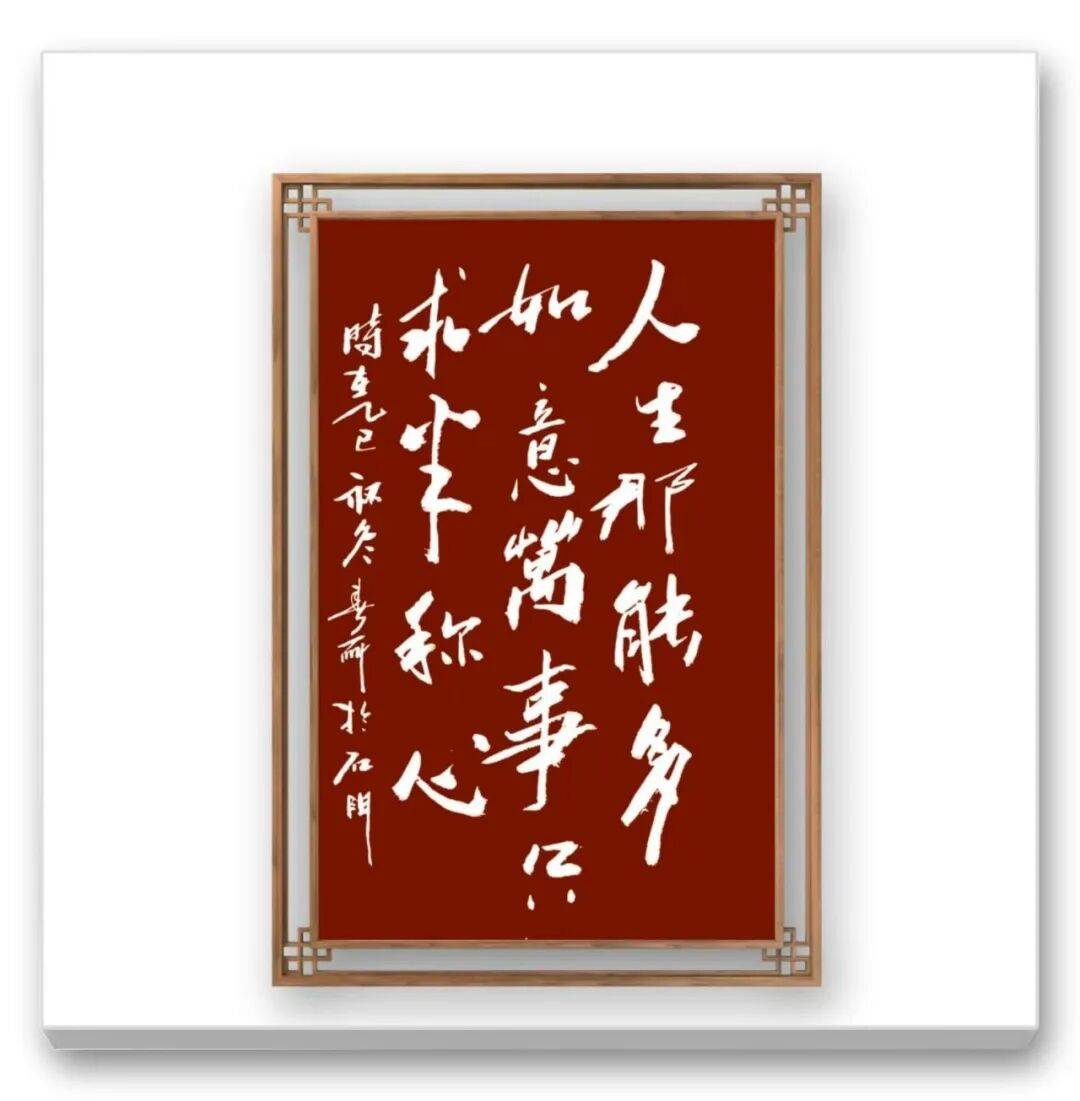 人生那能多
如意萬事只
求半称心
時在乙巳初冬壽軒於石門